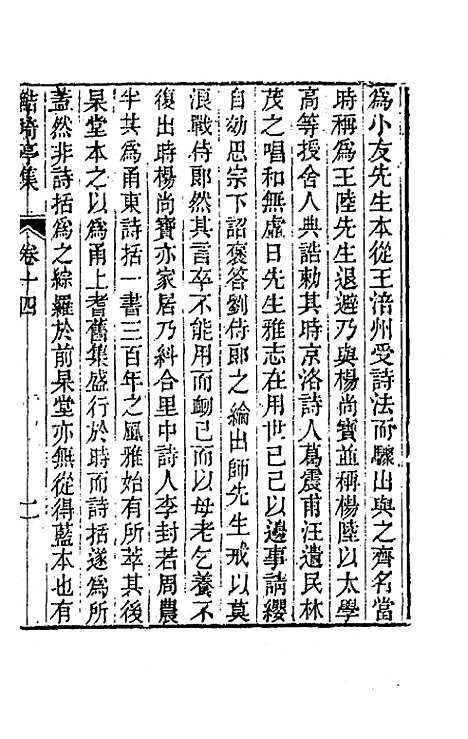 爲小友先生本從王涪州受詩法而驟出與之齊名當
時稱爲王陸先生退避乃與楊尚寶並稱楊陸以太學
高等授舍人典誥勅其時京洛詩人葛震甫汪遺民林
茂之唱和無虛日先生雅志在用世己巳以邊事請纓
自効思宗下詔褒答劉侍郎之綸出師先生戒以莫
浪戰侍郎然其言卒不能用而衂已而以母老乞養不
復出時楊尚寶亦家居乃糾合里中詩人李封若周農
半其爲甬東詩括一書三百年之風雅始有所萃其後
杲堂本之以爲甬上耆舊集盛行於時而詩括遂爲所
蓋然非詩括爲之綜羅於前杲堂亦無從得藍本也有
鮚埼亭集
卷十四
二